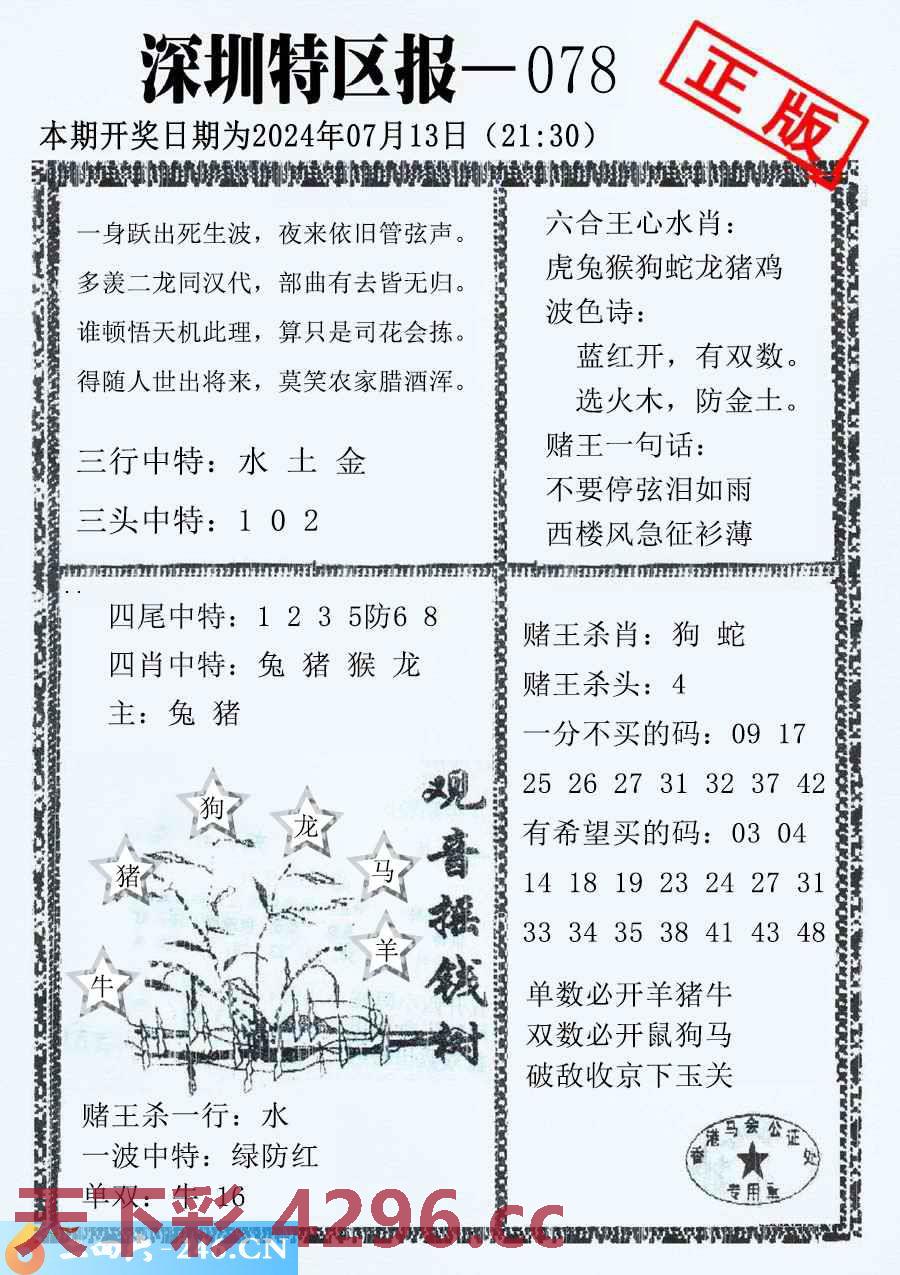 深圳特区报—078
正版
本期开奖日期为2024年07月13日（21:30）
一身跃出死生波，夜来依旧管弦声。
多羡二龙同汉代，部曲有去皆无归。
谁顿悟天机此理，算只是司花会拣。
得随人世出将来，莫笑农家腊酒浑。
三行中特：水 土 金
三头中特：1 0 2
六合王心水肖：
虎兔猴狗蛇龙猪鸡
波色诗：
蓝红开，有双数。
选火木，防金土。
赌王一句话：
不要停弦泪如雨
西楼风急征衫薄
四尾中特：1 2 3 5防6 8
四肖中特：兔 猪 猴 龙
主：兔 猪
狗
龙
猪
马
羊
牛
观音摇钱树
赌王杀一行：水
一波中特：绿防红
单双：牛 16
赌王杀肖：狗 蛇
赌王杀头：4
一分不买的码：09 17
25 26 27 31 32 37 42
有希望买的码：03 04
14 18 19 23 24 27 31
33 34 35 38 41 43 48
单数必开羊猪牛
双数必开鼠狗马
破敌收京下玉关
香港马会公证处
专用章
天下彩 4296.cc
-246.CN